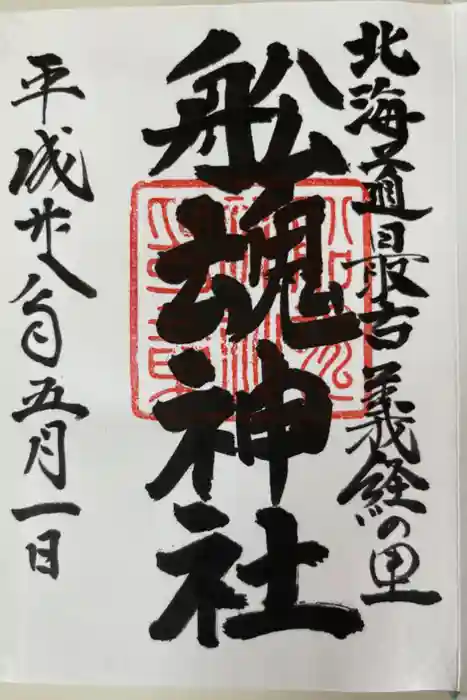 北海道最古義経の里
船魂神社
平成廿八年五月一日